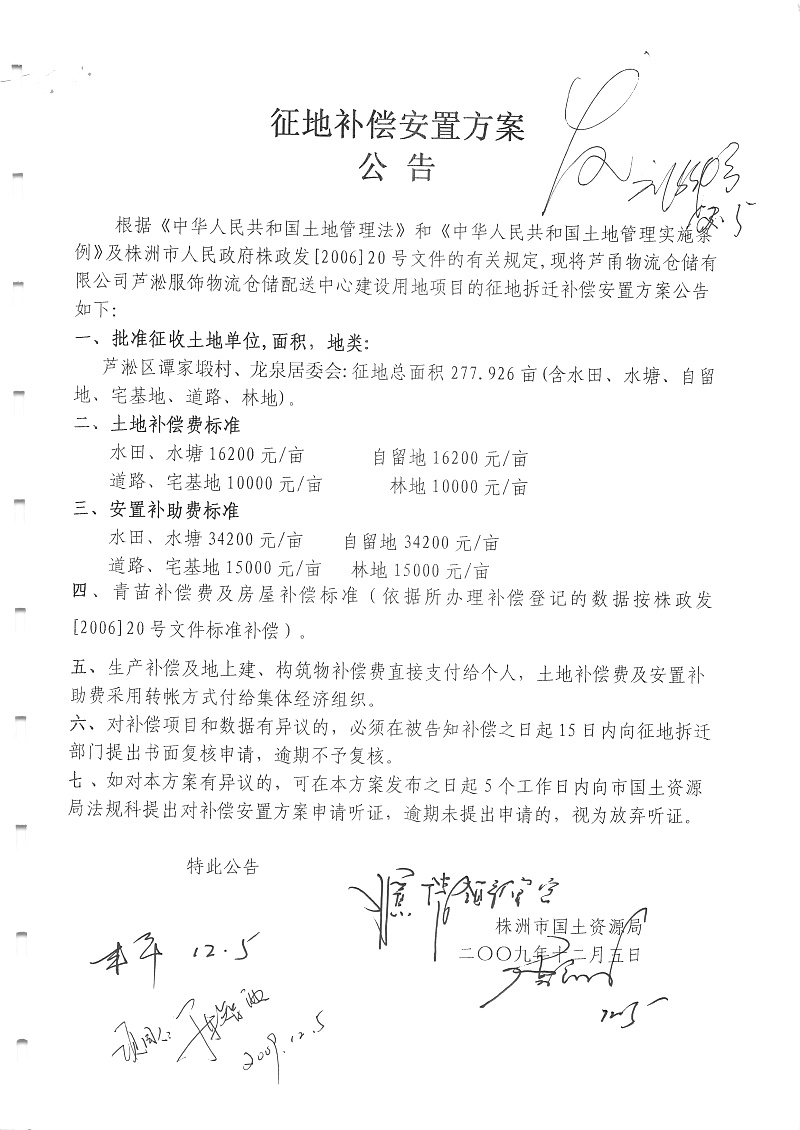 征地补偿安置方案
公 告
根据《中华人民共和国土地管理法》和《中华人民共和国土地管理实施条
例》及株洲市人民政府株政发[2006]20号文件的有关规定,现将芦甬物流仓储有
限公司芦淞服饰物流仓储配送中心建设用地项目的征地拆迁补偿安置方案公告
如下:
一、批准征收土地单位,面积,地类:
芦淞区谭家塅村、龙泉居委会:征地总面积277.926亩(含水田、水塘、自留
地、宅基地、道路、林地)。
二、土地补偿费标准
水田、水塘16200元/亩 自留地16200元/亩
道路、宅基地10000元/亩 林地10000元/亩
三、安置补助费标准
水田、水塘34200元/亩 自留地34200元/亩
道路、宅基地15000元/亩 林地15000元/亩
四、青苗补偿费及房屋补偿标准(依据所办理补偿登记的数据按株政发
[2006]20号文件标准补偿)。
五、生产补偿及地上建、构筑物补偿费直接支付给个人,土地补偿费及安置补
助费采用转帐方式付给集体经济组织。
六、对补偿项目和数据有异议的,必须在被告知补偿之日起15日内向征地拆迁
部门提出书面复核申请,逾期不予复核。
七、如对本方案有异议的,可在本方案发布之日起5个工作日内向市国土资源
局法规科提出对补偿安置方案申请听证,逾期未提出申请的,视为放弃听证。
特此公告
株洲市国土资源局
二〇〇九年十二月五日
12.5
12.5
2009.12.5